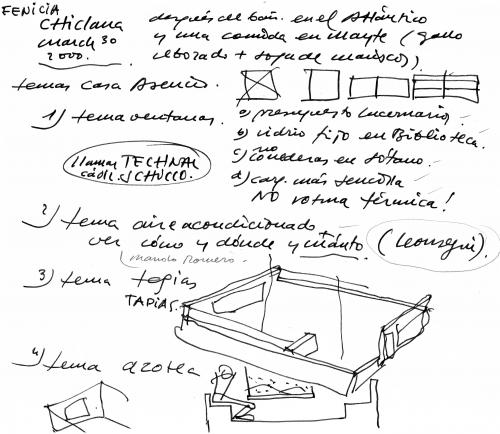 FENICIA
Chiclana
march 30
2000.
después del bañ. en el Atlántico
y una comida en Mayte (gallo
reborado + sopa de marisco)).
temas casa Asencio.
1) tema ventanas.
a) presupuesto lucernario.
b) vidrio fijo en Biblioteca.
c) no correderas en sótano.
d) carp. más sencilla
NO rotura térmica!
llamar TECHNAL
cádiz. SCHUCO.
2) tema aire acondicionado
ver cómo y dónde y cuánto. +
mando Romero.
3) tema tapias
TAPIAS.
4) tema azotea